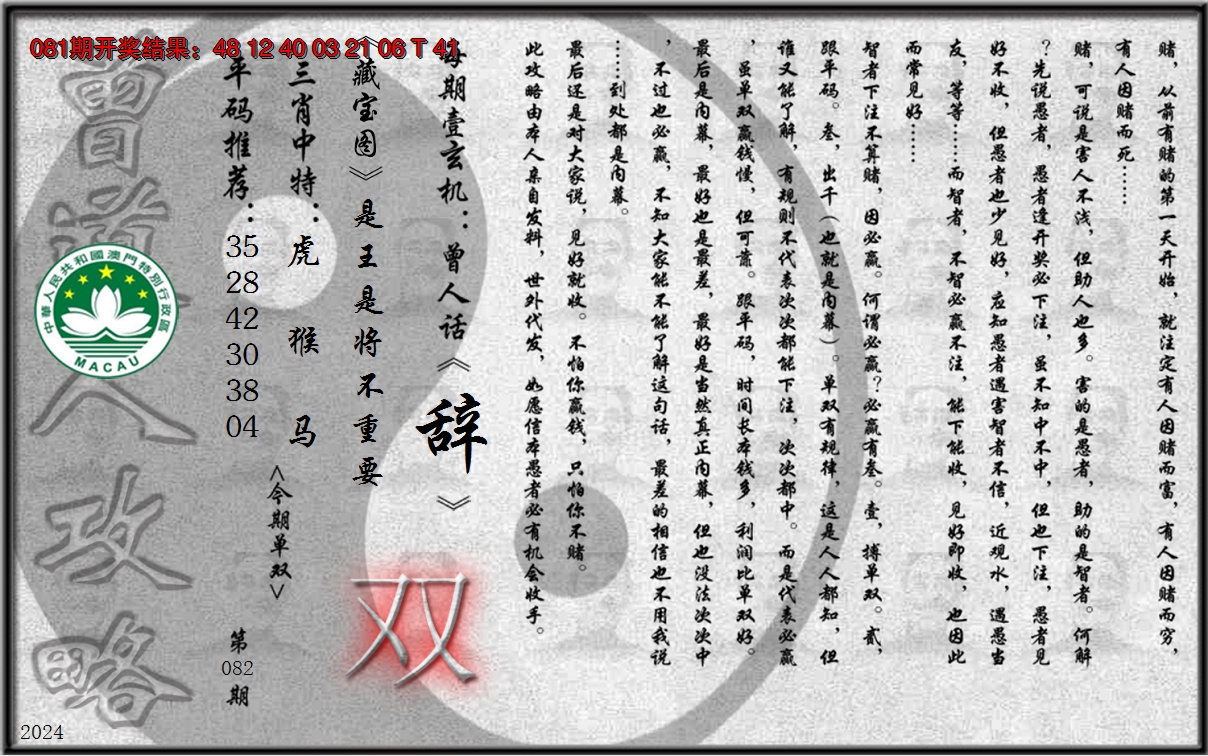 081期开奖结果：48 12 40 03 21 06 T 41
赌，从前有赌的第一天开始，就注定有人因赌而富，有人因赌而穷，
有人因赌而死……
赌，可说是害人不浅，但助人也多。害的是愚者，助的是智者。何解
？先说愚者，愚者逢开奖必下注，虽不知中不中，但也下注，愚者见
好不收，但愚者也少见好，应知愚者遇害智者不信，近观水，遇愚当
友，等等……而智者，不智必赢不注，能下能收，见好即收，也因此
而常见好……
智者下注不算赌，因必赢。何谓必赢？必赢有叁。壹，搏单双。贰，
跟平码。叁，出千（也就是内幕）。单双有规律，这是人人都知，但
谁又能了解，有规则不代表次次都能下注，次次都中。而是代表必赢
，虽单双赢钱慢，但可靠。跟平码，时间长本钱多，利润比单双好。
最后是内幕，最好也是最差，最好是当然真正内幕，但也没法次次中
，不过也必赢，不知大家能不能了解这句话，最差的相信也不用我说
……到处都是内幕。
最后还是对大家说，见好就收。不怕你赢钱，只怕你不赌。
此攻略由本人亲自发料，世外代发，如愿信本愚者必有机会收手。
每期壹玄机：曾人话《辞》
《藏宝图》是王是将不重要
三肖中特：虎 猴 马
<今期单双>
双
平码推荐：
35
28
42
30
38
04
第
082
期
曾道人攻略
中華人民共和國澳門特別行政區
MACAU
2024